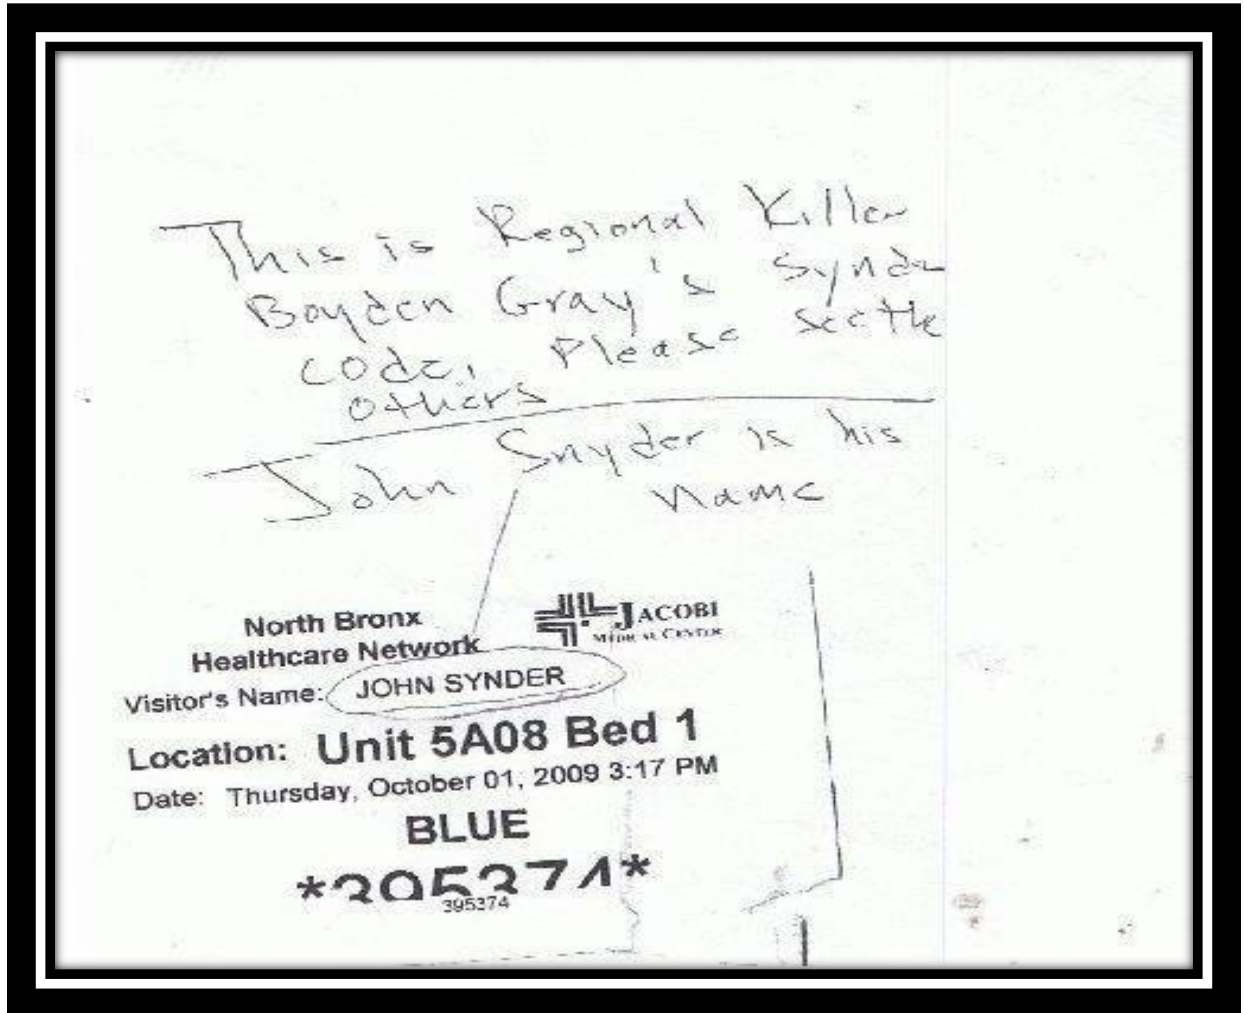 This is Regional Killer
Boyden Gray's Synde
code, Please see the
others
John Snyder is his
Name
North Bronx
Healthcare Network
JACOBI
MEDICAL CENTER
Visitor's Name: JOHN SYNDER
Location: Unit 5A08 Bed 1
Date: Thursday, October 01, 2009 3:17 PM
BLUE
*395374*
395374